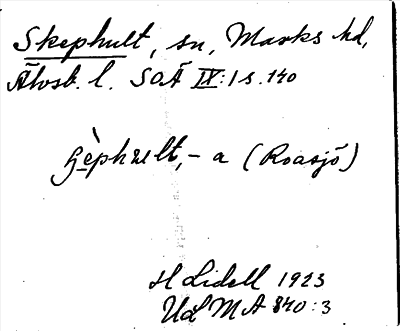 Skephult, sn, Marks hd,
Älvsb. l. SOÄ IX:1 s. 140
hult, - a (Roasjö)
H Lidell 1923
ULMA 840:3